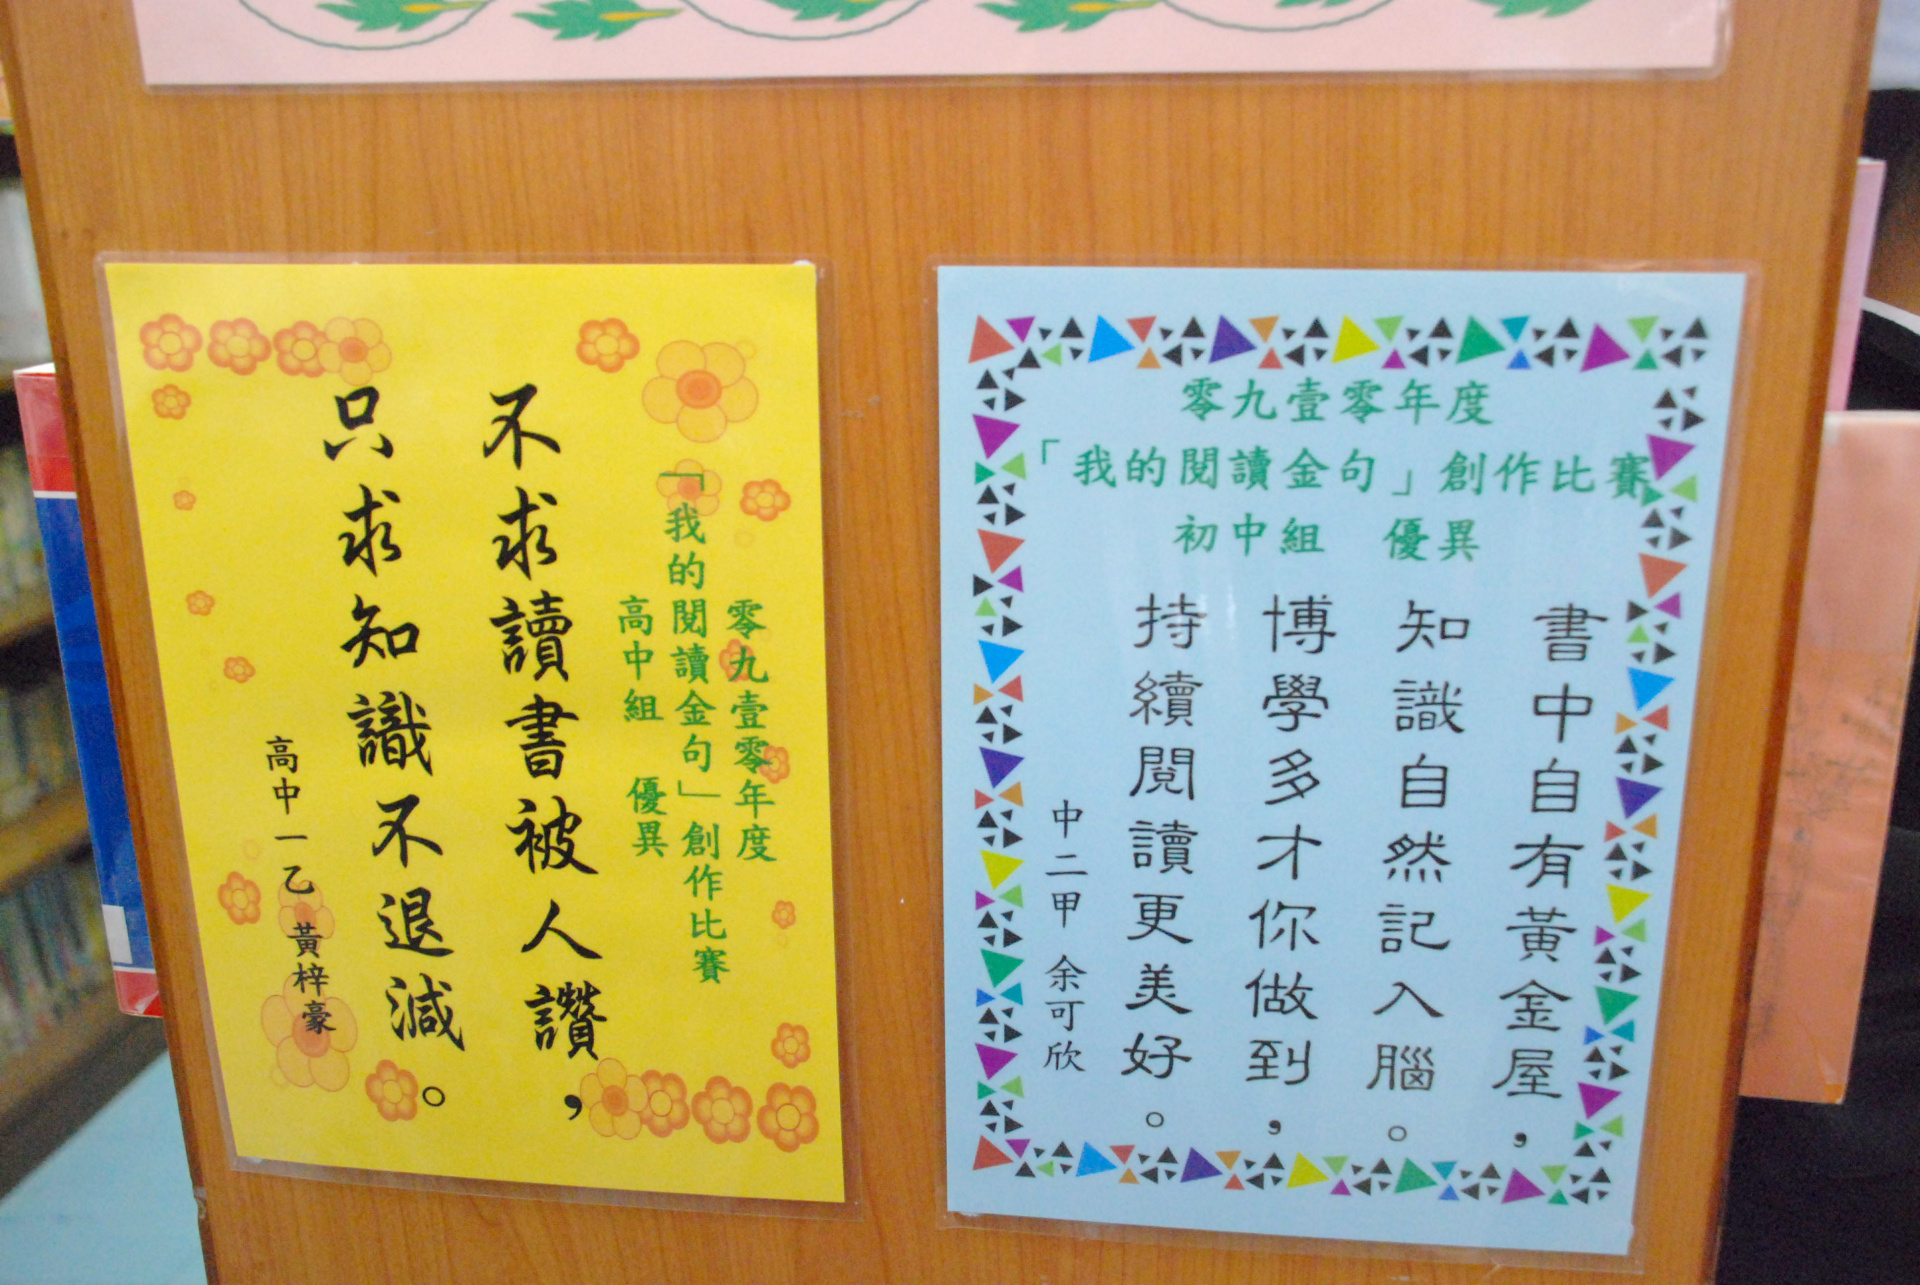 零九壹零年度
「我的閱讀金句」創作比賽
高中組　優異
不求讀書被人讚，
只求知識不退減。
高中一乙　黃梓豪
零九壹零年度
「我的閱讀金句」創作比賽
初中組　優異
書中自有黃金屋，
知識自然記入腦。
博學多才你做到，
持續閱讀更美好。
中二甲　余可欣